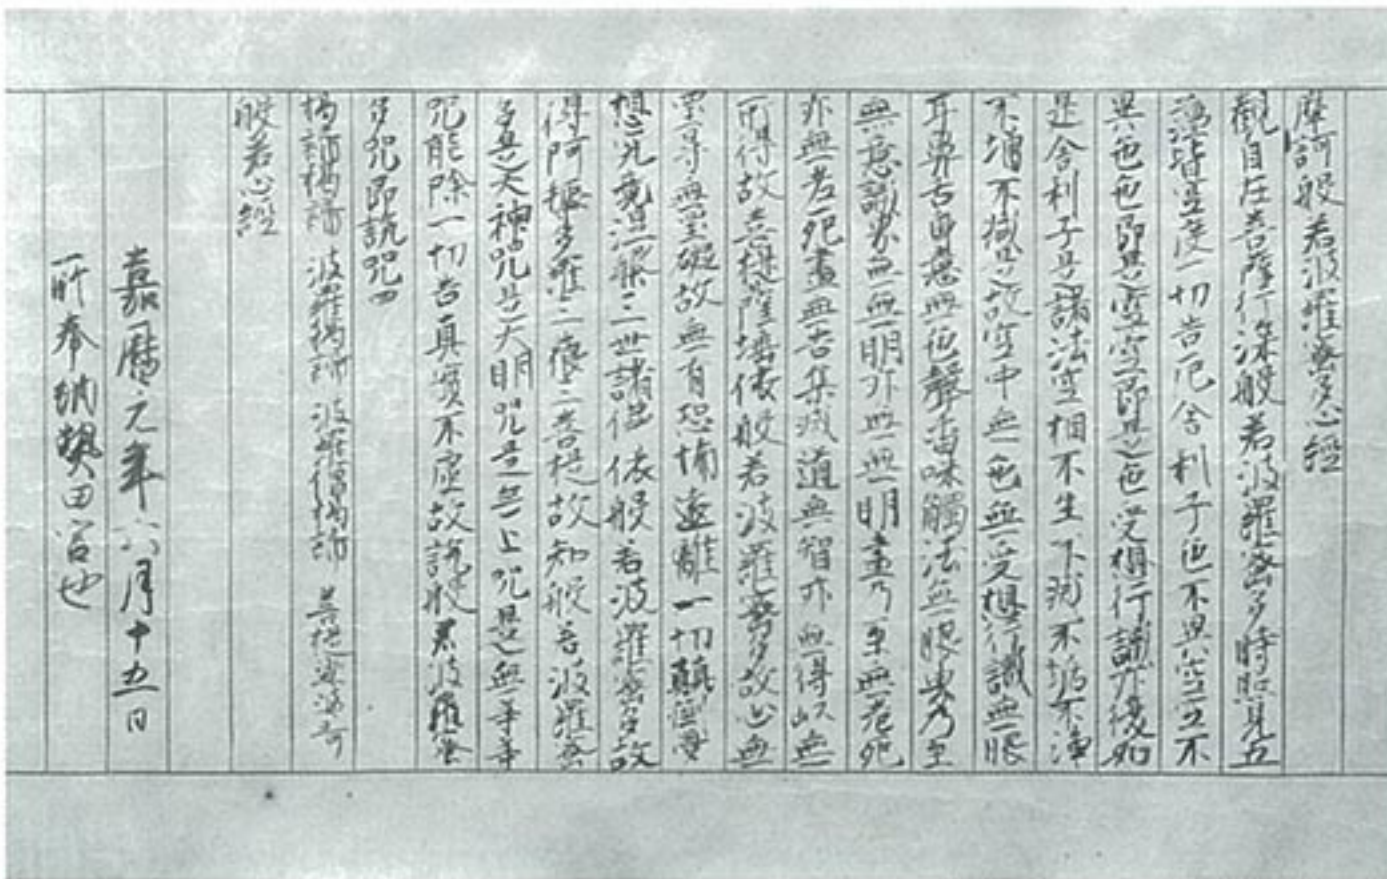 摩訶般若波羅蜜多心経
観自在菩薩行深般若波羅蜜多時照見五
蘊皆空度一切苦厄舎利子色不異空々不
異色色即是空空即是色受想行識亦復如
是舎利子是諸法空相不生不滅不垢不浄
不増不減是故空中無色無受想行識無眼
耳鼻舌身意無色聲香味觸法無眼界乃至
無意識界無無明亦無無明盡乃至無老死
亦無老死盡無苦集滅道無智亦無得以無
所得故菩提薩埵依般若波羅蜜多故心無
罣㝵無罣礙故無有恐怖遠離一切顛倒夢
想究竟涅槃三世諸仏依般若波羅蜜多故
得阿耨多羅三藐三菩提故知般若波羅蜜
多是大神咒是大明咒是無上咒是無等等
咒能除一切苦真実不虚故説般若波羅蜜
多咒即説咒曰
揭諦揭諦 波羅揭諦 波羅僧揭諦 菩提娑婆訶
般若心経
嘉暦元年六月十五日
所奉納田宮也